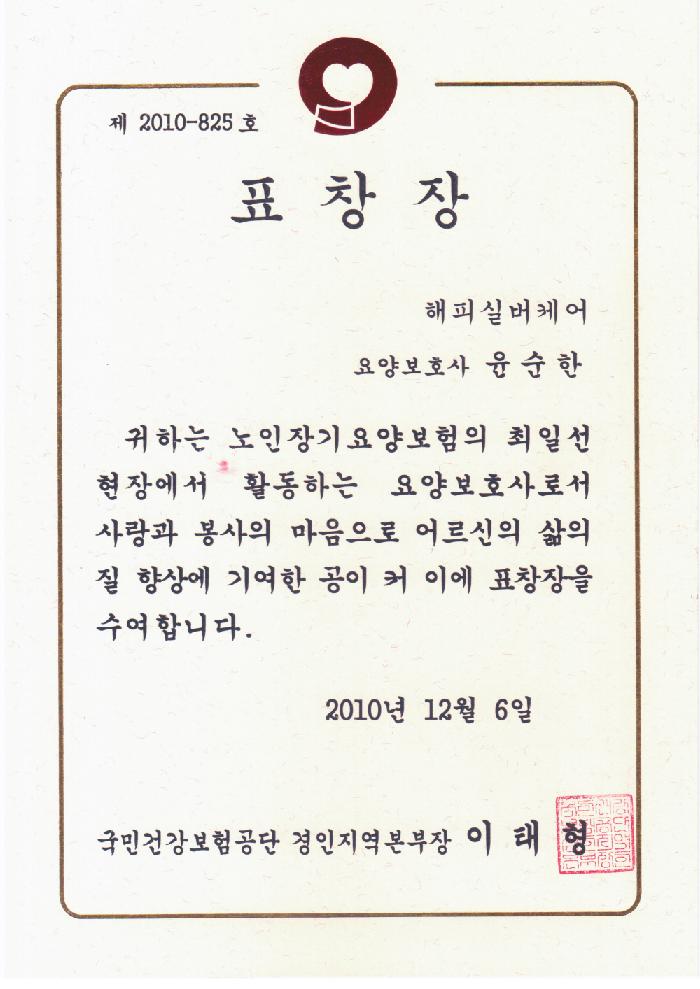 제 2010-825 호
표 창 장
해피실버케어
요양보호사 윤 순 한
귀하는 노인장기요양보험의 최일선
현장에서 활동하는 요양보호사로서
사랑과 봉사의 마음으로 어르신의 삶의
질 향상에 기여한 공이 커 이에 표창장을
수여합니다.
2010년 12월 6일
국민건강보험공단 경인지역본부장 이 태 형